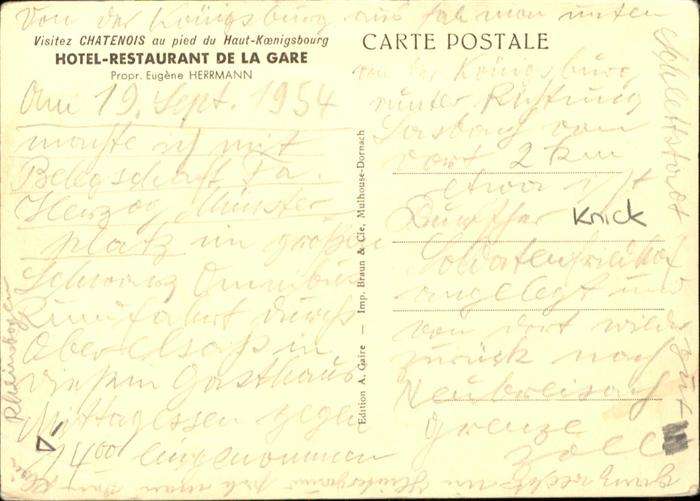 Von der Königsburg aus sah man unten
Schlettstadt
Visitez CHATENOIS au pied du Haut-Kœnigsbourg
HOTEL-RESTAURANT DE LA GARE
Propr. Eugène HERRMANN
CARTE POSTALE
Am 19. Sept. 1954
machte ich mit
Belegschaft Fa.
Herzog Münster-
platz im großen
Schwarz Omnibus
Rundfahrt durch
Oberelsaß in
Gasthaus
Mittagessen gegen
14 00 eingenommen
Edition A. Gaire — Imp. Braun & Cie, Mulhouse-Dornach
von der Königsburg
runter Richtung
von
dort 2 km
etwa ist
Knick
Soldatenfriedhof
angelegt und
von dort wieder
zurück nach
Neubreisach
Grenze
Zoll